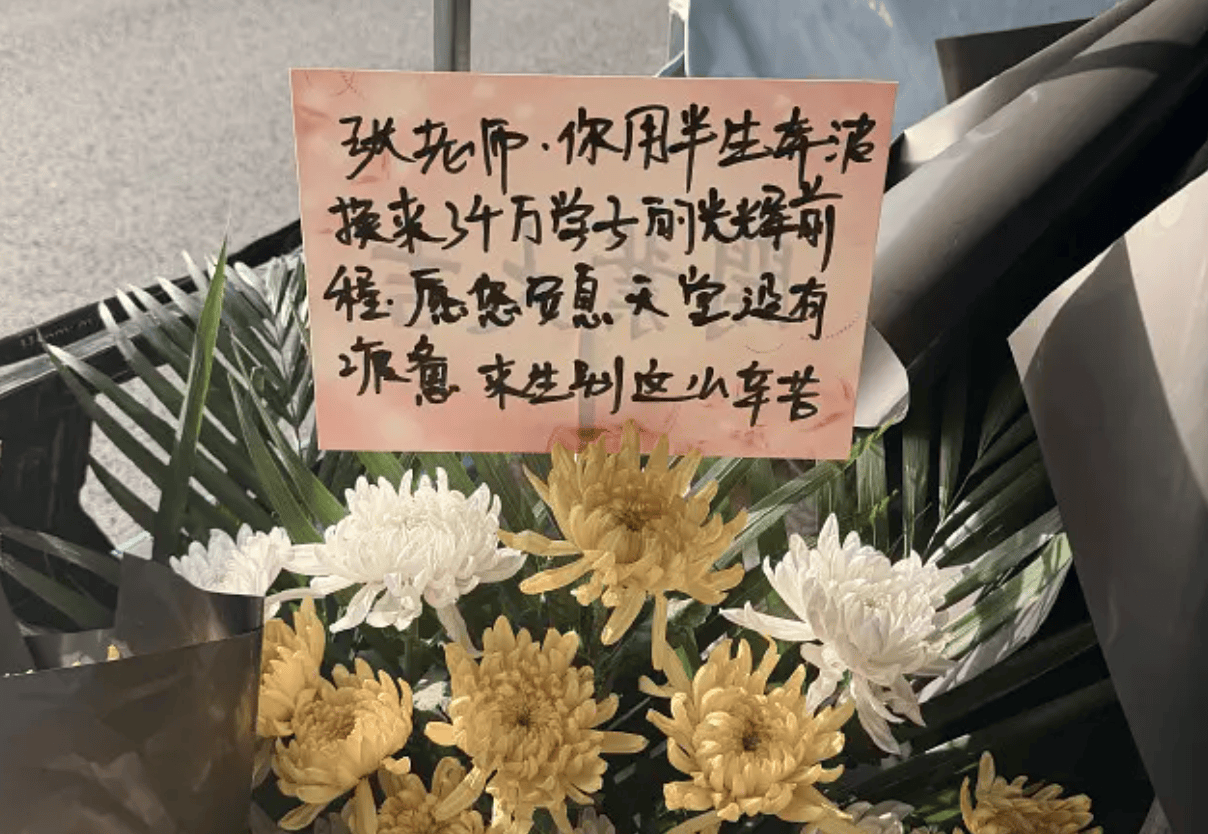 张老师.你用半生奔波
换来了千万学子的光辉前
程.愿您安息 天堂没有
疲惫 来生别这么辛苦